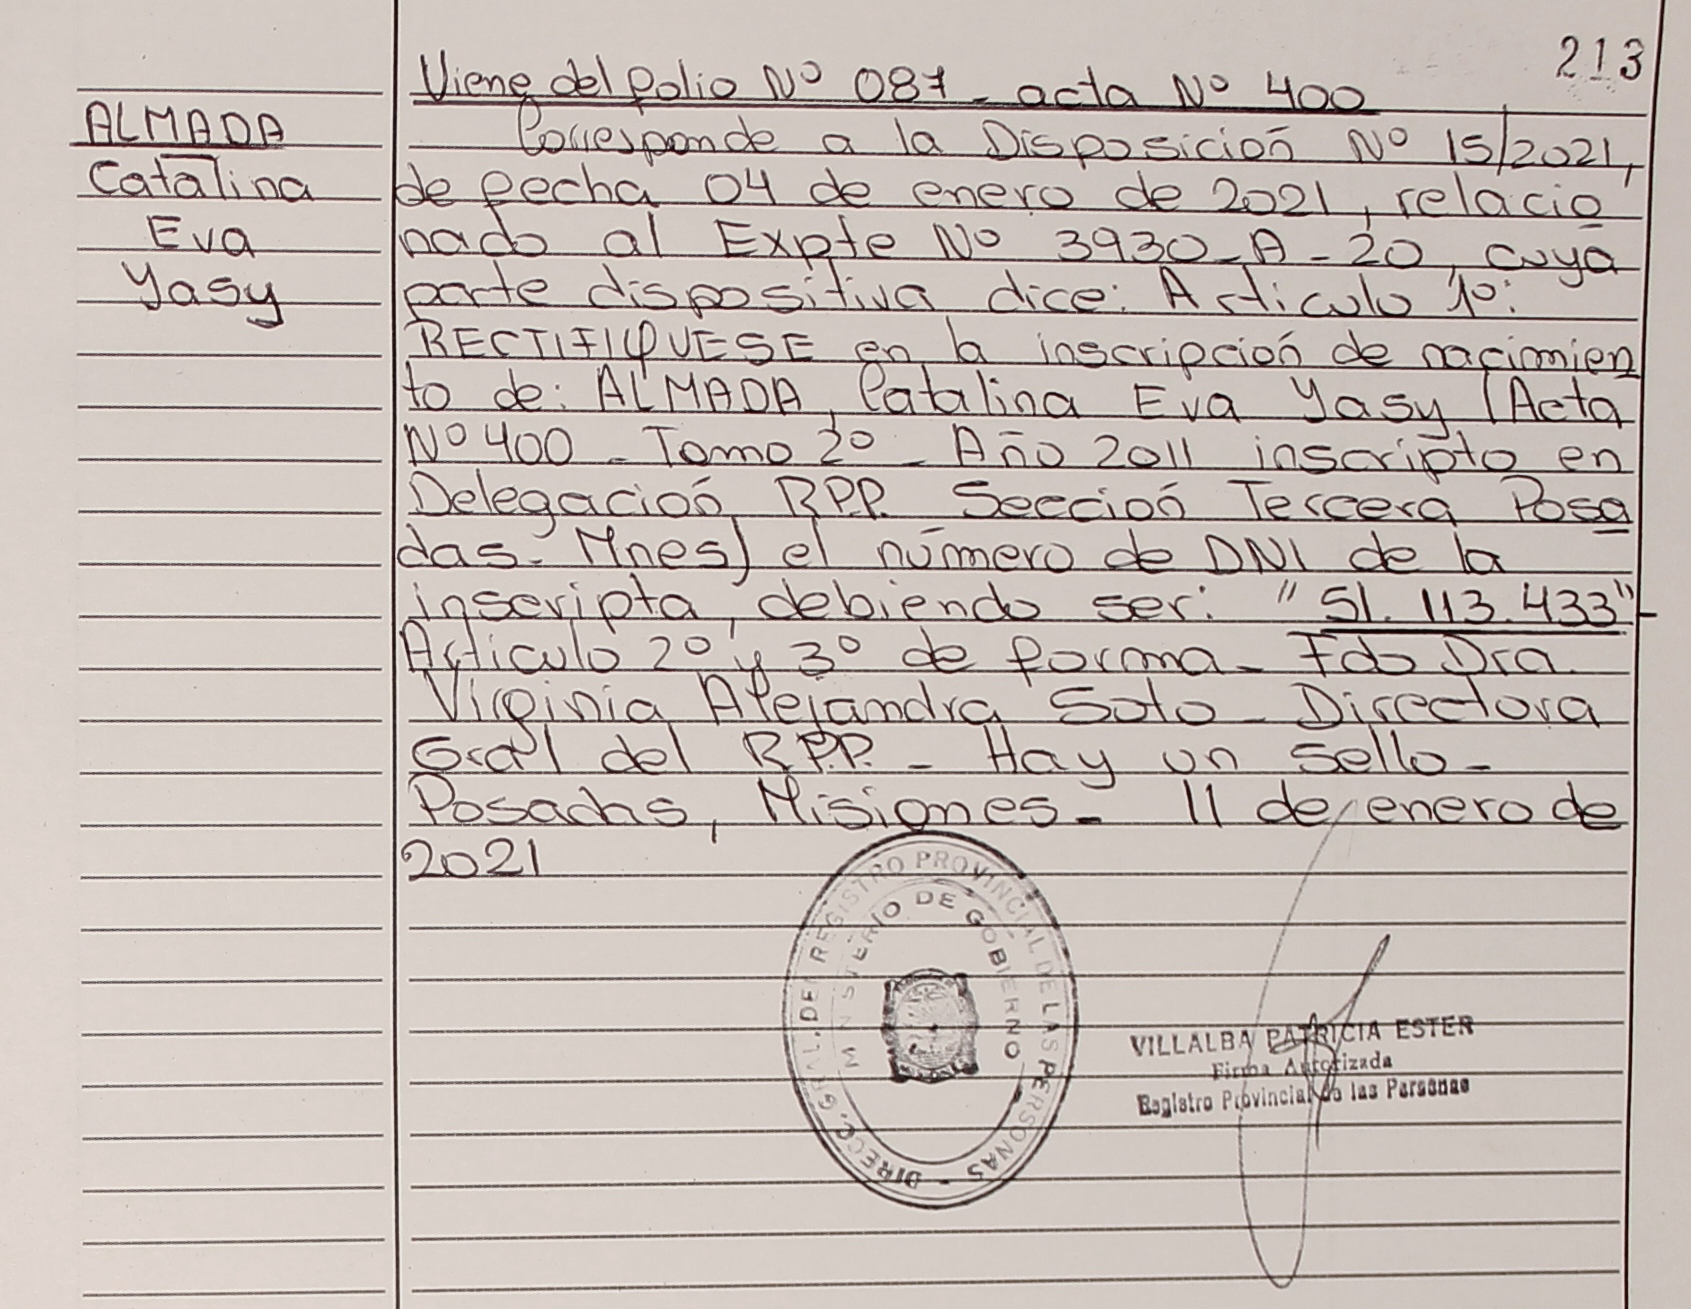 213
Viene del folio Nº 087 - acta Nº 400
ALMADA
Catalina
Eva
Yasy
Corresponde a la Disposición Nº 15/2021,
de fecha 04 de enero de 2021, relacio
nado al Expte Nº 3930-A-20, cuya
parte dispositiva dice: Articulo 1º:
RECTIFIQUESE en la inscripción de nacimien
to de: ALMADA, Catalina Eva Yasy (Acta
Nº 400 - Tomo 2º - Año 2011 inscripto en
Delegación R.P.P. Sección Tercera Posa
das - Mnes) el número de DNI de la
inscripta, debiendo ser: "51.113.433"-
Articulo 2º y 3º de forma - Fdo Dra.
Virginia Alejandra Soto - Directora
Gral del R.P.P. - Hay un sello -
Posadas, Misiones - 11 de enero de
2021
DIRECC. GRAL. DEL REGISTRO PROVINCIAL DE LAS PERSONAS -
MINISTERIO DE GOBIERNO
VILLALBA PATRICIA ESTER
Firma Autorizada
Registro Provincial de las Personas